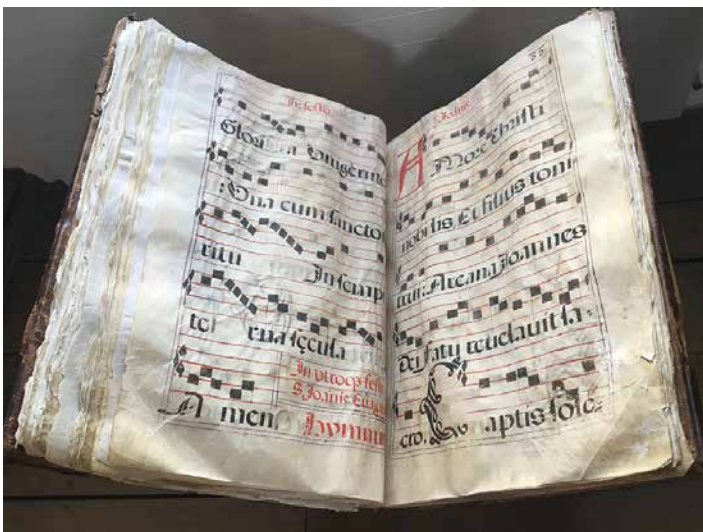 In festo
Gloria Unigenito
: Una cum sancto
ritu In semp
to rna sęcula
In utroq; fest
S. Joānis Euāg
A men Hymnu
Joānis.
85
Amore Christi
nobilis Et filius toni
trui: Arcana Joannes
Dei fatu reuelauit sa-
cro. C aptis sole-